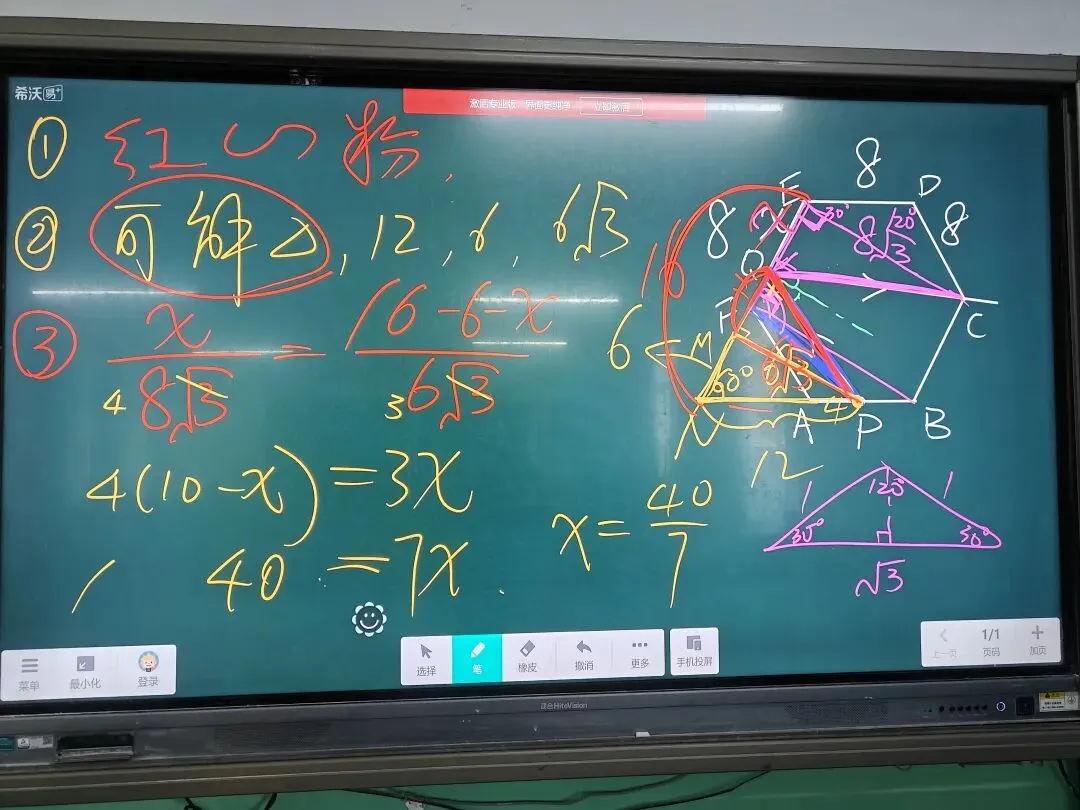 希沃易+
激活专业版，界面更纯净 立即激活
① 红 ∽ 粉.
② 可解△, 12, 6, 6√3
③ x/8√3 = (16-6-x)/6√3
4 3
4(10-x) = 3x
40 = 7x.
x = 40/7
8
E D
8 x 30° 8√3 120° 8
Q
16
F C
6 M
60° 6√3
N A 4 P B
12
1 120° 1
30° 30°
√3
菜单 最小化 登录
选择 笔 橡皮 撤消 更多 手机投屏
上一页 1/1 页码 加页
HiteVision